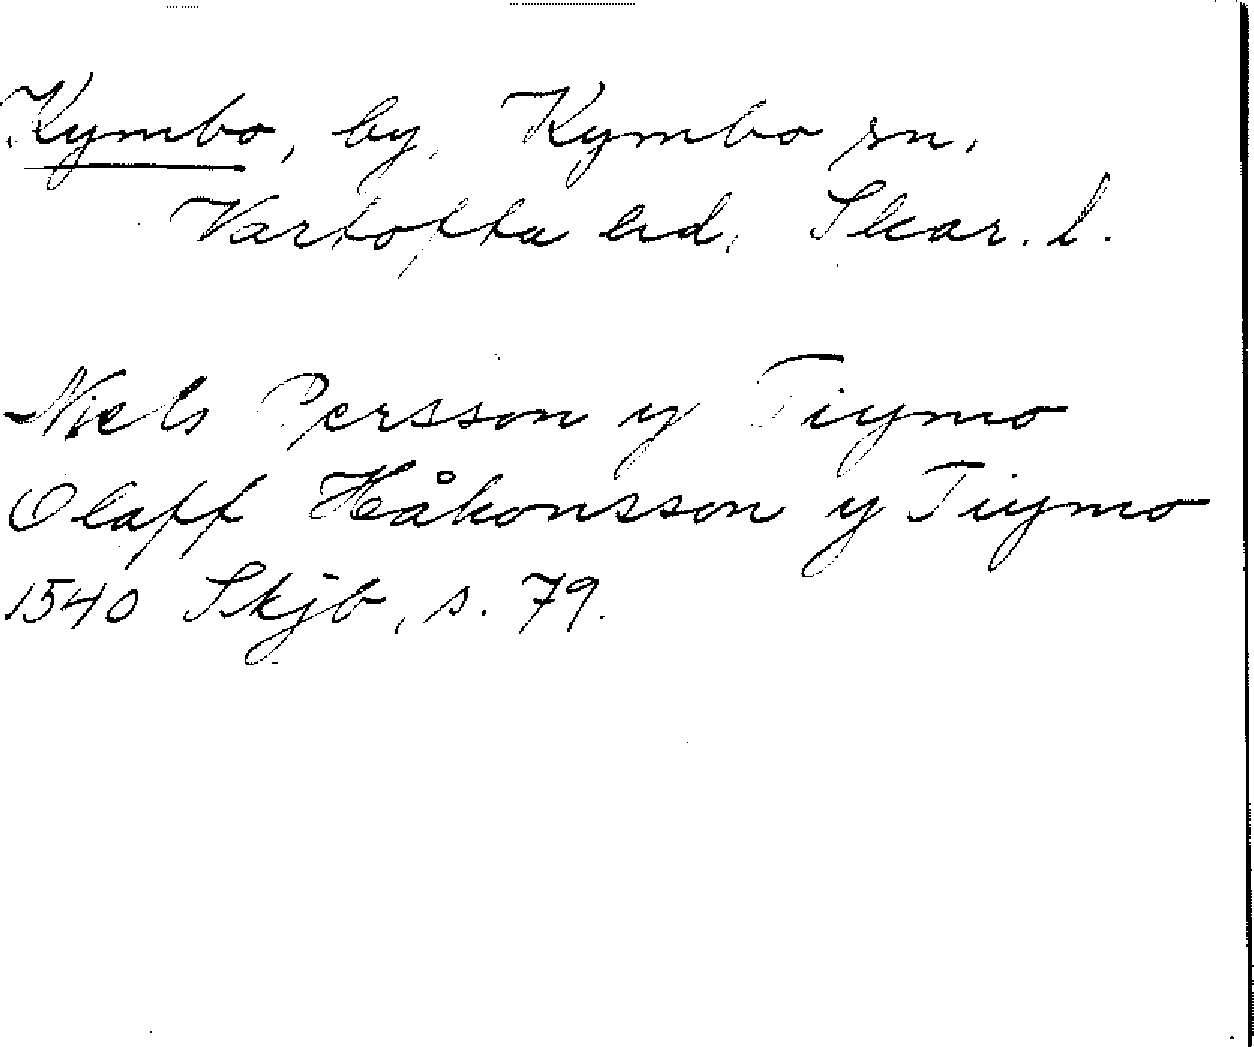 Kymbo, by, Kymbo sn,
Vartofta hd, Skar. l.
Niels Persson y Tiymo
Olaff Håkonsson y Tiymo
1540 Skjb, s. 79.